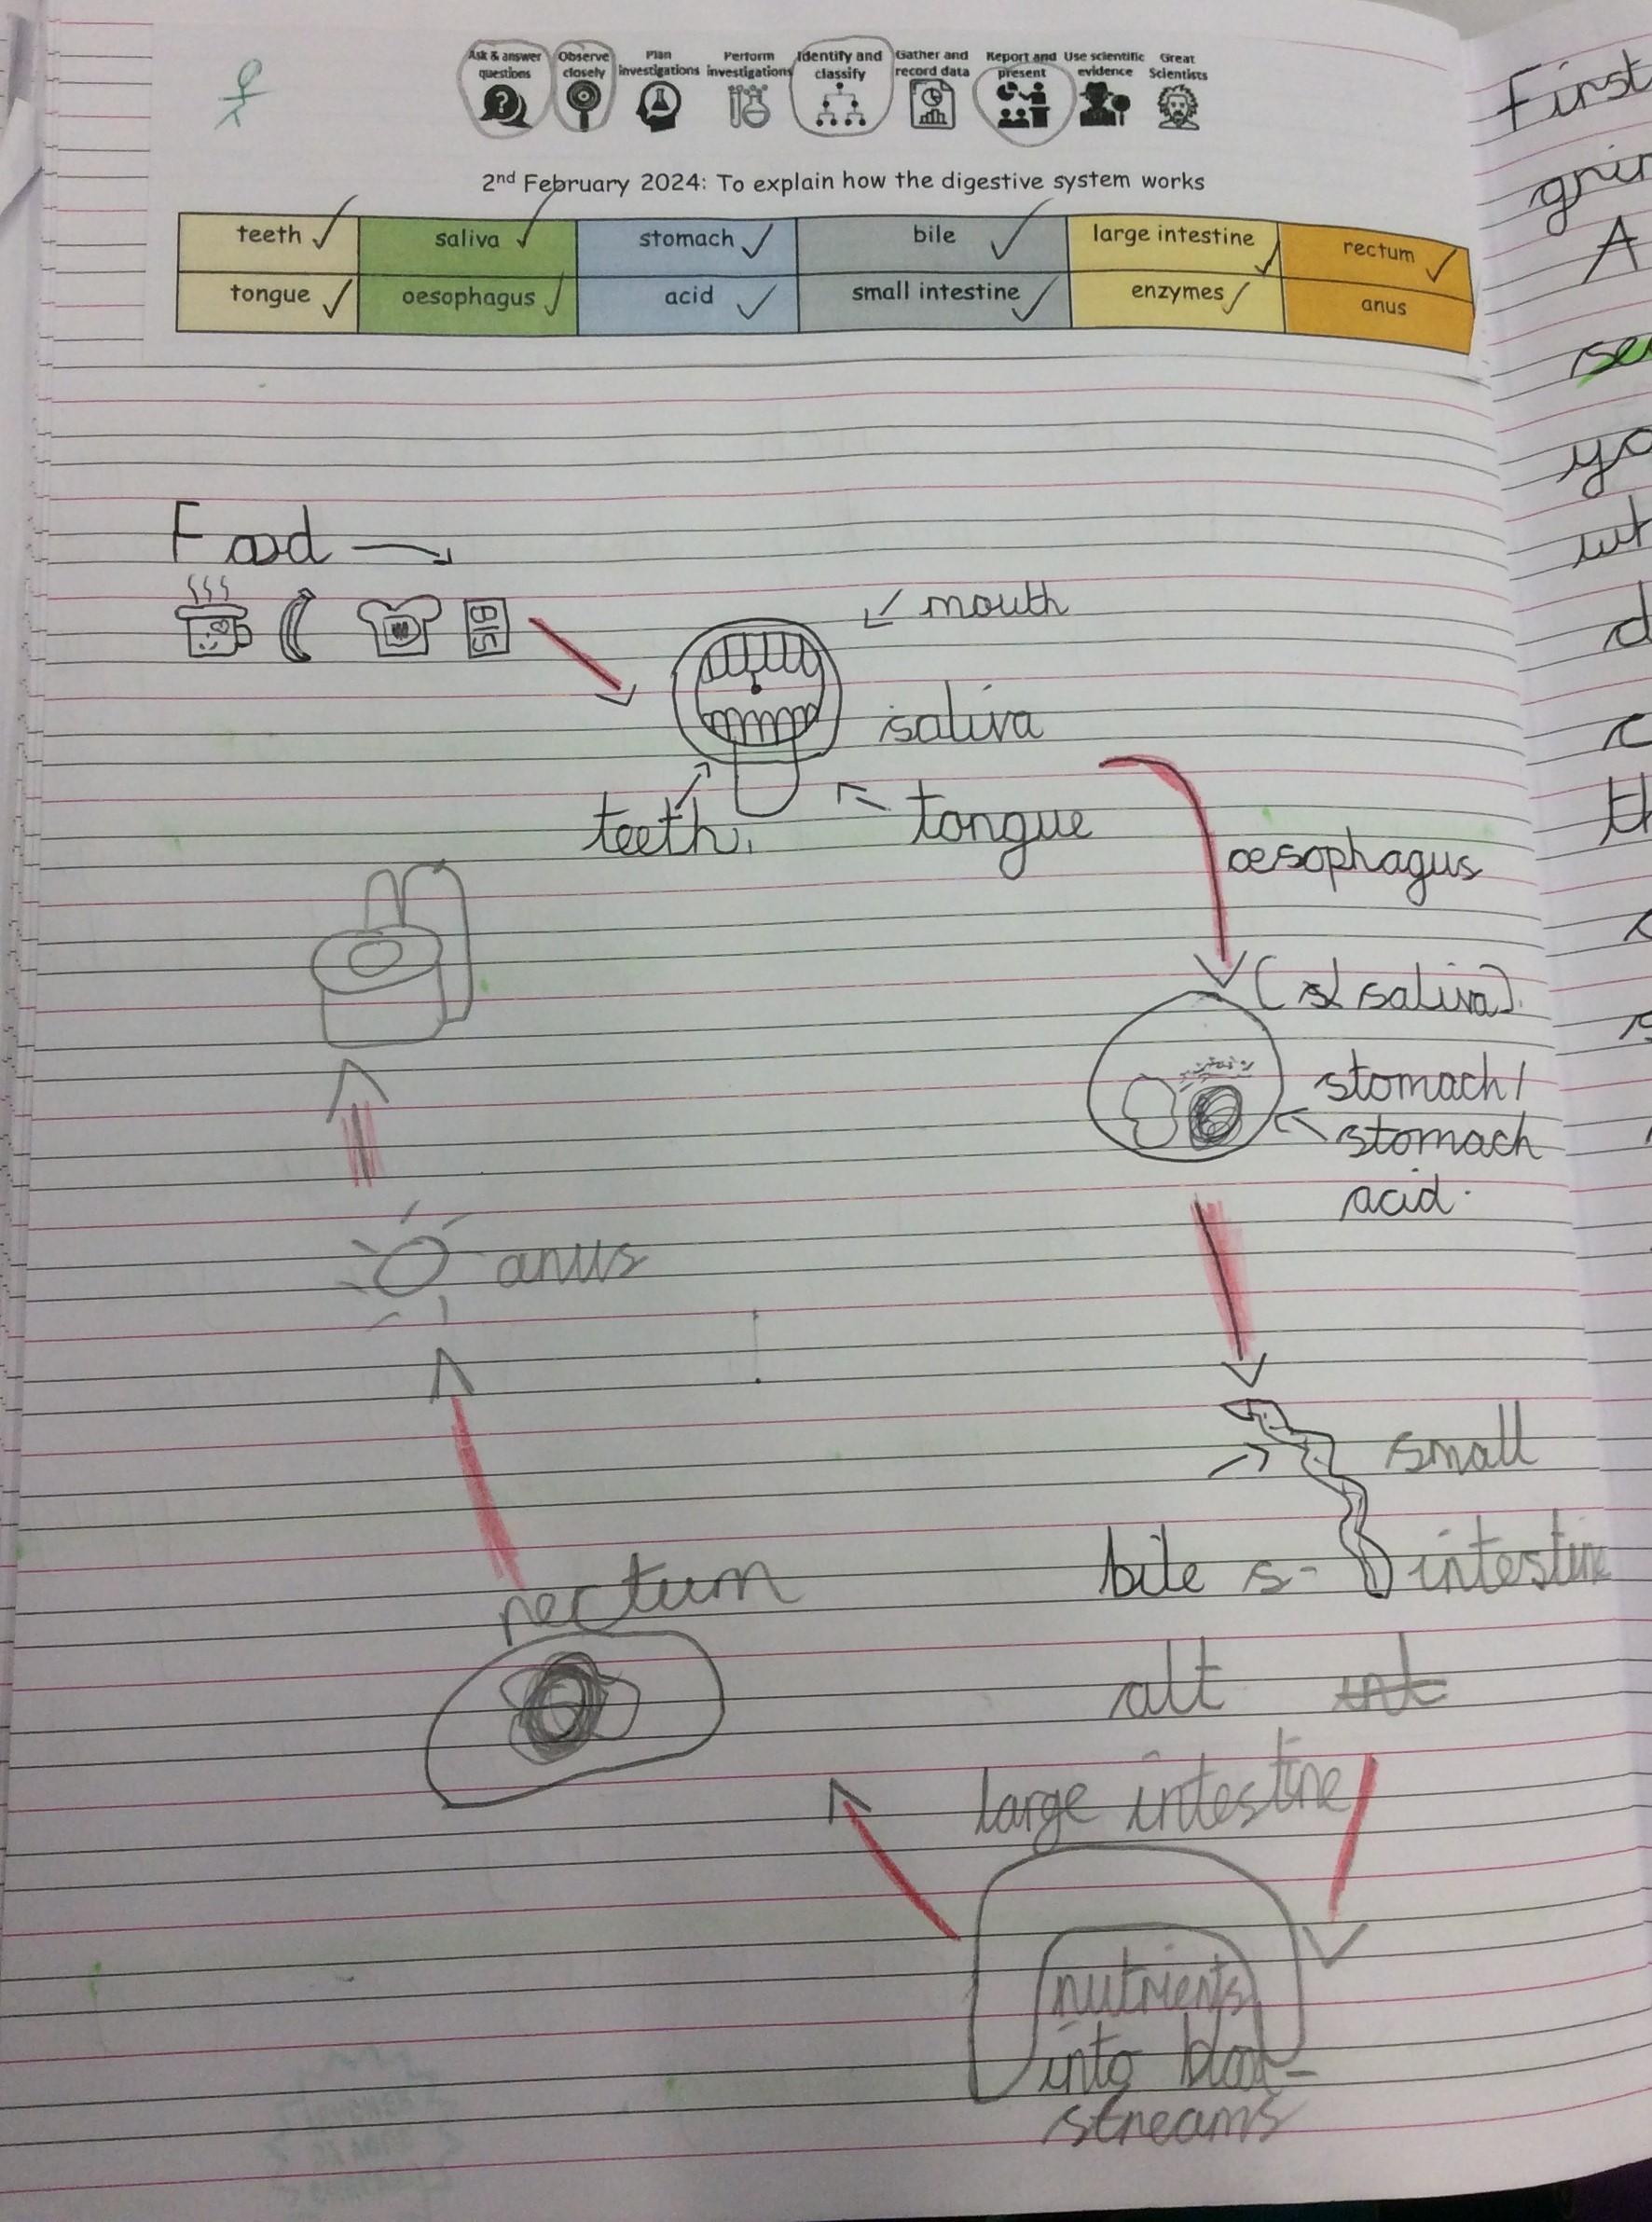 Ask & answer questions
Observe closely
Plan investigations
Perform investigations
Identify and classify
Gather and record data
Report and present
Use scientific evidence
Great Scientists
2nd February 2024: To explain how the digestive system works
teeth saliva stomach bile large intestine rectum
tongue oesophagus acid small intestine enzymes anus
Food
BIS
mouth
saliva
teeth
tongue
oesophagus
(saliva)
stomach/
stomach
acid.
small
bile s- intestine
alt int
anus
rectum
large intestine
nutrients
into blod-
streams
First
A